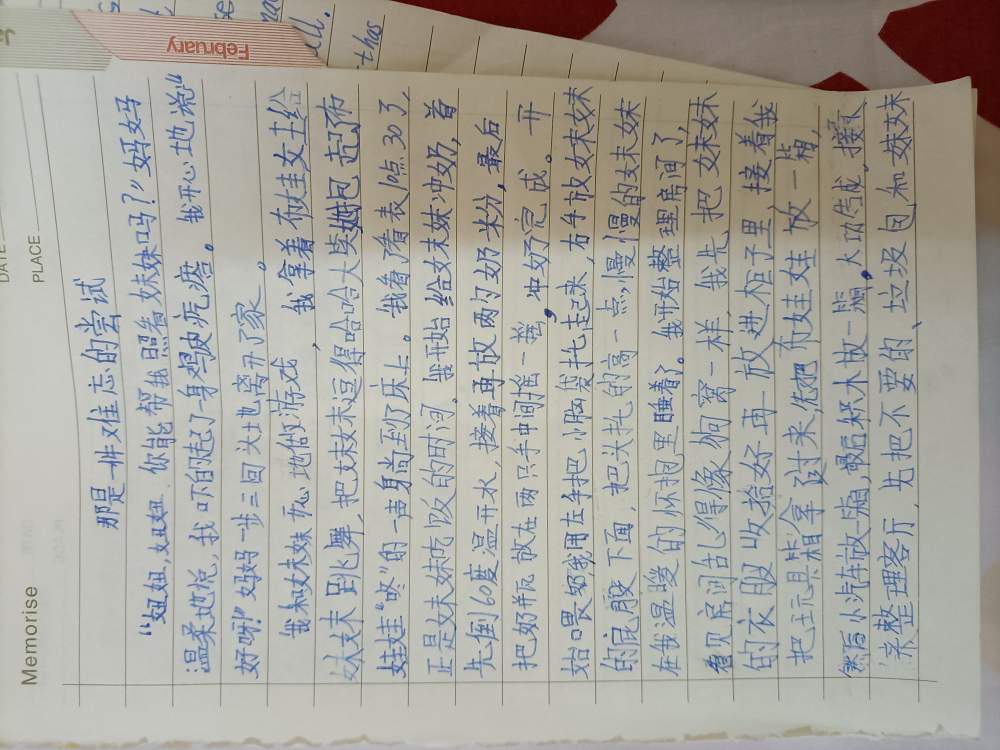 Memorise
DATE
PLACE
February
那是一件难忘的尝试
“妞妞,妞妞.你能帮我照看妹妹吗?”妈妈
温柔地说,我吓的起了一身鸡皮疙瘩。我开心地说“
好呀!”妈妈一步三回头地离开了家。
我和妹妹开心地做游戏,我拿着布娃娃女士给
妹妹跳舞,把妹妹逗得哈哈大笑 起布
娃娃“咚”的一声身前到了床上。我看了看表1点30了,
正是妹妹吃饭的时间。我开始给妹妹冲奶,首
先倒60度温开水,接着再放两勺奶米分,最后
把奶瓶放在两只手中间摇一摇,冲奶完成。开
始喂奶我用左手把小脑袋托起来,右手放妹妹
的屁股下面,把头托的高一点,慢慢的妹妹
在我温暖的怀抱里睡着了。我开始整理房间了,
看见房间乱得像狗窝一样,我先把妹妹
的衣服收拾好再放进柜子里,接着我
把玩具箱拿过来,把布娃娃放一箱,
然后小汽车放一箱,最后积木放一箱。大功告成,接下
来整理客厅,先把不要的、垃圾包和妹妹